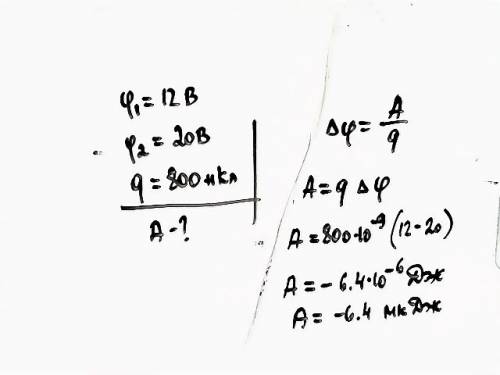 φ₁ = 12 В
φ₂ = 20 В
q = 800 нКл
A - ?
Δφ = A/q
A = q Δφ
A = 800·10⁻⁹ (12 - 20)
A = - 6.4·10⁻⁶ Дж
A = -6.4 мкДж